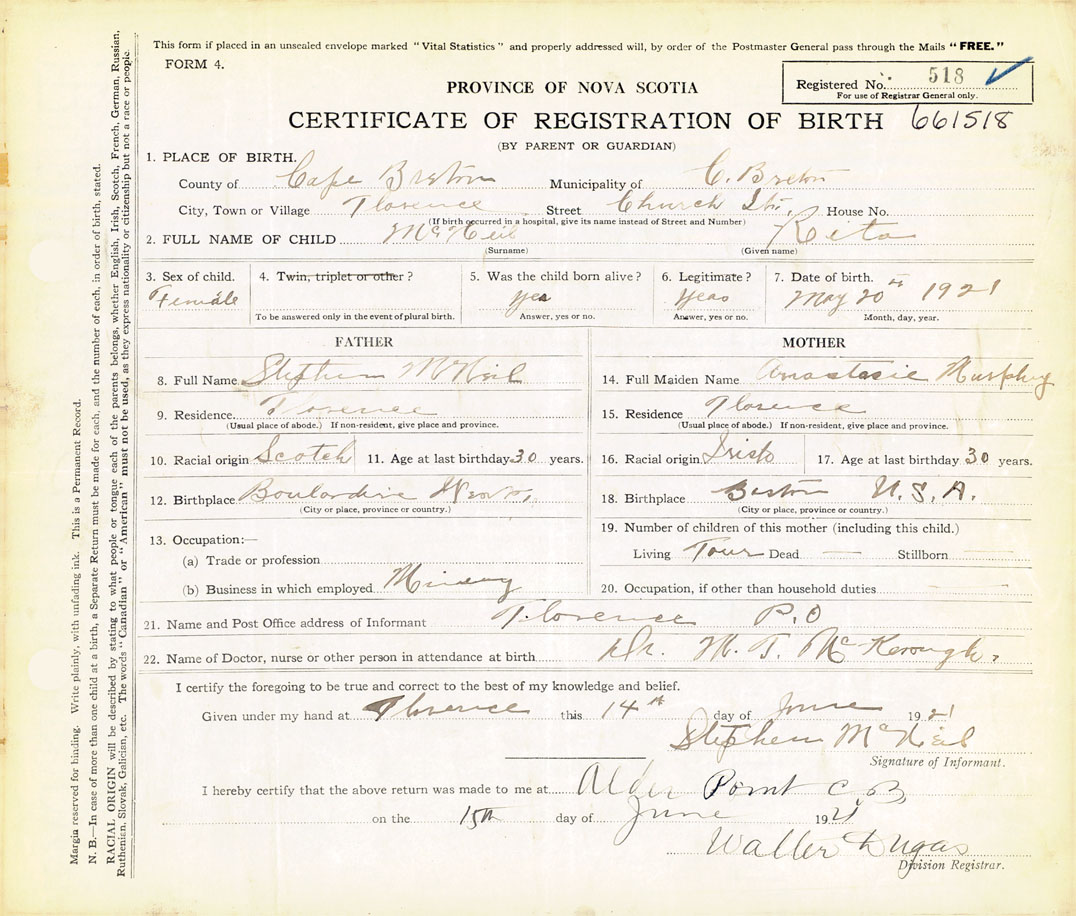 This form if placed in an unsealed envelope marked "Vital Statistics" and properly addressed will, by order of the Postmaster General pass through the Mails "FREE."
FORM 4.
Registered No. 518
For use of Registrar General only.
PROVINCE OF NOVA SCOTIA
CERTIFICATE OF REGISTRATION OF BIRTH 661518
(BY PARENT OR GUARDIAN)
1. PLACE OF BIRTH.
County of Cape Breton Municipality of C. Breton
City, Town or Village Florence Street Church Str. House No.
(If birth occurred in a hospital, give its name instead of Street and Number)
2. FULL NAME OF CHILD McNeil Rita
(Surname) (Given name)
3. Sex of child. 4. Twin, triplet or other? 5. Was the child born alive? 6. Legitimate? 7. Date of birth.
Female yes yeas May 20th 1921
To be answered only in the event of plural birth. Answer, yes or no. Answer, yes or no. Month, day, year.
FATHER
8. Full Name Stephen McNeil
9. Residence. Florence
(Usual place of abode.) If non-resident, give place and province.
10. Racial origin Scotch 11. Age at last birthday 30 years.
12. Birthplace Boulardrie
(City or place, province or country.)
13. Occupation:—
(a) Trade or profession
(b) Business in which employed Mining
MOTHER
14. Full Maiden Name Anastasie Murphy
15. Residence Florence
(Usual place of abode.) If non-resident, give place and province.
16. Racial origin Irish 17. Age at last birthday 30 years.
18. Birthplace Boston U.S.A.
(City or place, province or country.)
19. Number of children of this mother (including this child.)
Living Four Dead — Stillborn —
20. Occupation, if other than household duties —
21. Name and Post Office address of Informant Florence P.O
22. Name of Doctor, nurse or other person in attendance at birth Dr. M. T. McKeough.
I certify the foregoing to be true and correct to the best of my knowledge and belief.
Given under my hand at Florence this 14th day of June 1921
Stephen McNeil
Signature of Informant.
I hereby certify that the above return was made to me at Alder Point C.B.
on the 15th day of June 1921
Walter Dugas
Division Registrar.
Margin reserved for binding. Write plainly, with unfading ink. This is a Permanent Record.
N. B.—In case of more than one child at a birth, a Separate Return must be made for each, and the number of each, in order of birth, stated.
RACIAL ORIGIN will be described by stating to what people or tongue each of the parents belongs, whether English, Irish, Scotch, French, German, Russian,
Ruthenian, Slovak, Galician, etc. The words "Canadian" or "American" must not be used, as they express nationality or citizenship but not a race or people.